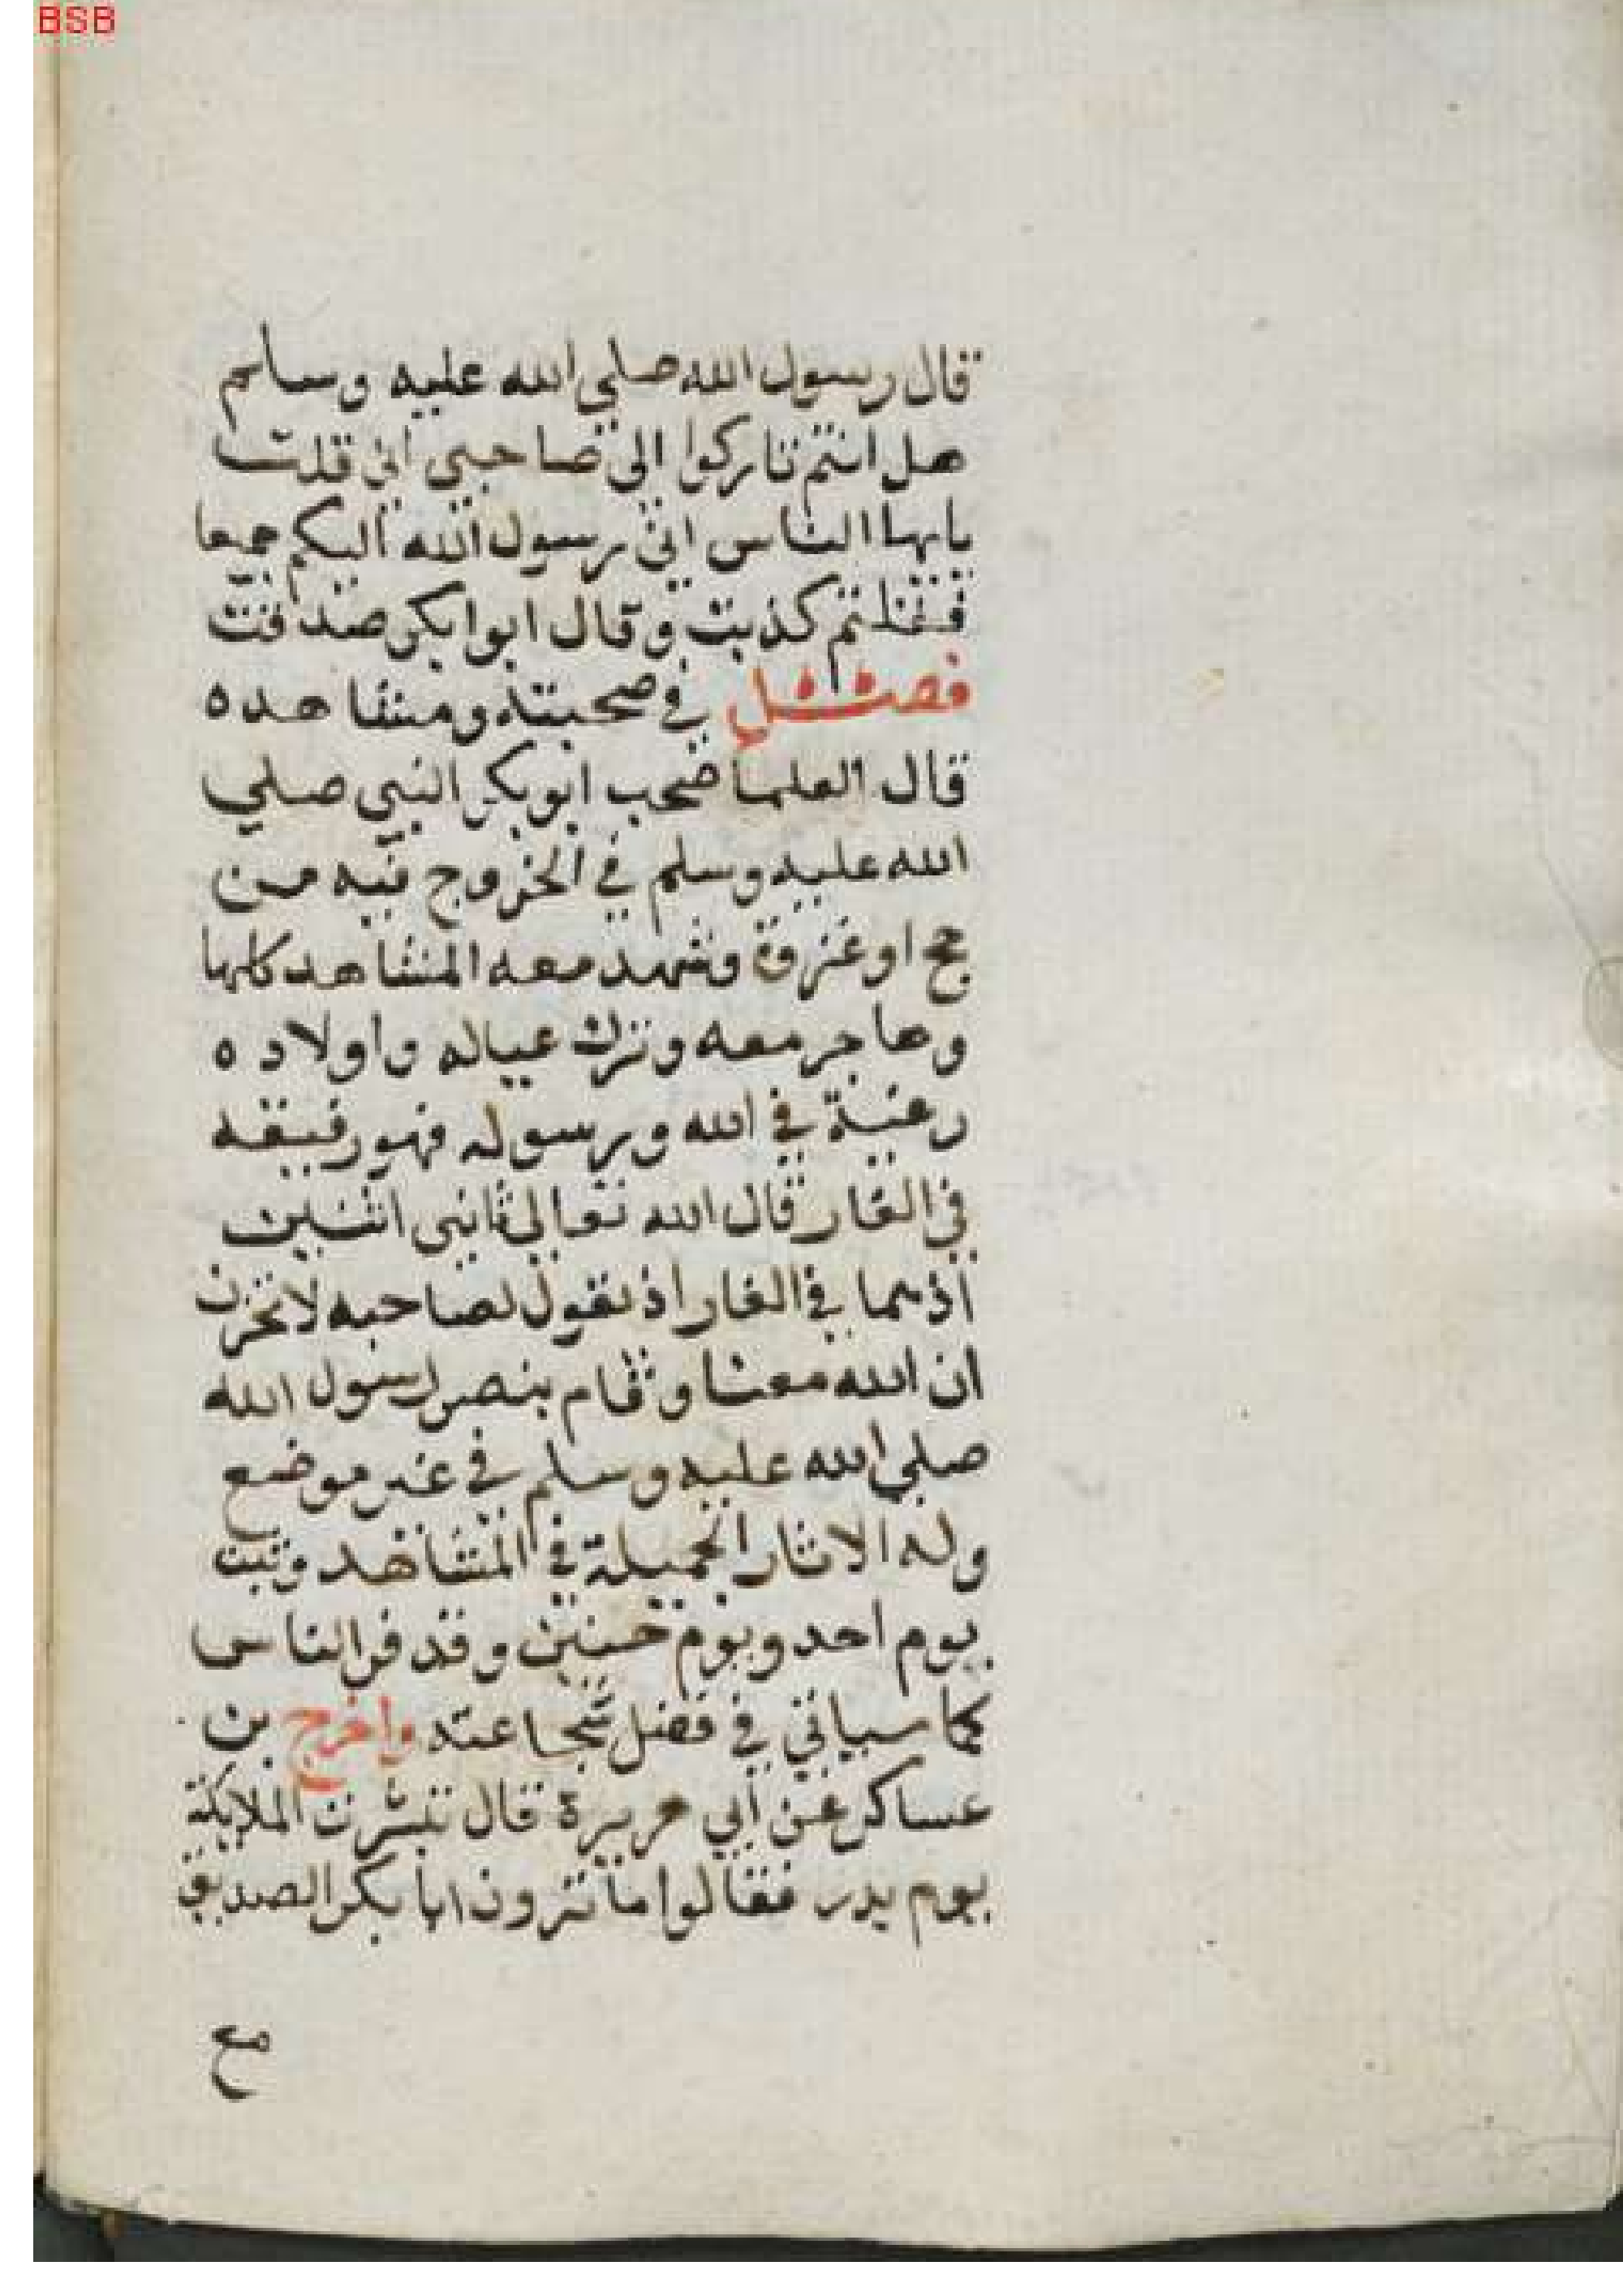 BSB
قال رسول الله صلي الله عليه وسلم
هل انتم تاركوا الى صاحبي انى قلت
يايها الناس انى رسول الله اليكم جميعا
فقلتم كذبت وقال ابوابكر صدقت
فصل في صحبته ومشاهده
قال العلما صحب ابوبكر النبي صلي
الله عليه وسلم في الخروج فيه من
حج او غزوة وشهد معه المشاهد كلها
وهاجر معه وترك عياله واولاده
رغبة في الله ورسوله فهو رفيقه
في الغار قال الله تعالي ثاني اثنين
اذ هما في الغار اذ يقول لصاحبه لا تحزن
ان الله معنا وقام بنصر رسول الله
صلي الله عليه وسلم في غير موضع
وله الاثار الجميلة في المشاهد وثبت
يوم احد ويوم حنين وقد فر الناس
كما سياتي في فصل شجاعته واخرج بن
عساكر عن أبي هريرة قال تبشرت الملايكة
يوم بدر فقالوا ما ترون ابا بكر الصديق
مع